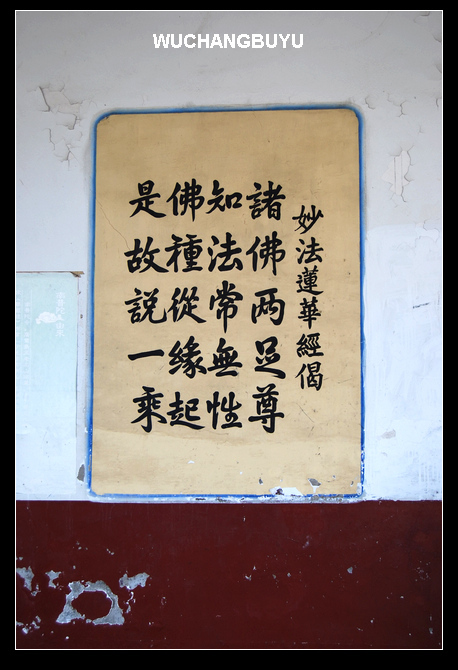 WUCHANGBUYU
妙法蓮華經偈
諸佛两足尊
知法常無性
佛種從緣起
是故説一乘